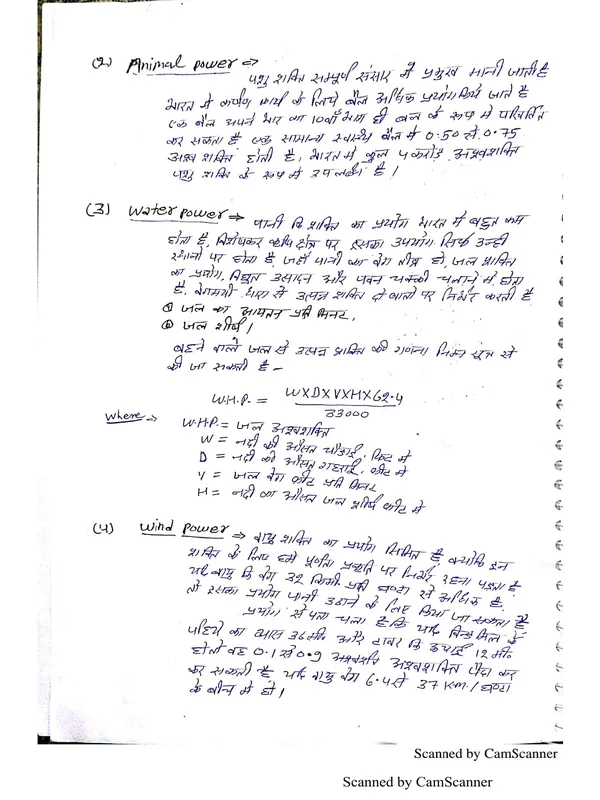 (2) Animal power ⇒
पशु शक्ति सम्पूर्ण संसार में प्रमुख मानी जाती है
भारत में कर्षण कार्य के लिये बैल अधिक प्रयोग किये जाते है
एक बैल अपने भार का 10वाँ भाग ही बल के रूप में परिवर्तित
कर सकता है एक सामान्य स्वास्थ्य बैल में 0.50 से 0.75
अश्व शक्ति होती है, भारत में कुल 4 करोड़ अश्वशक्ति
पशु शक्ति के रूप में उपलब्ध है।
(3) Water power ⇒ पानी कि शक्ति का प्रयोग भारत में बहुत कम
होता है, विशेषकर कृषि क्षेत्र पर इसका उपयोग सिर्फ उन्ही
स्थानो पर होता है जहाँ पानी का वेग तीव्र हो, जल शक्ति
का प्रयोग, विद्युत उत्पादन और पवन चक्की चलाने में होता
है, वेगमयी धारा से उत्पन्न शक्ति दो बातो पर निर्भर करती है
① जल का आयतन प्रति मिनट,
② जल शीर्ष।
बहने वाले जल से उत्पन्न शक्ति की गणना निम्न सूत्र से
की जा सकती है -
W.H.P. = WXDXVXHX62.4
33000
Where ⇒ W.H.P. = जल अश्वशक्ति
W = नदी की औसत चौड़ाई, फिट में
D = नदी की औसत गहराई, फीट में
V = जल वेग फीट प्रति मिनट
H = नदी का औसत जल शीर्ष फीट में
(4) Wind power ⇒ वायु शक्ति का प्रयोग सिमित है, क्योकि इस
शक्ति के लिए हमे पूर्णता प्रकृति पर निर्भर रहना पड़ता है
यदि वायु कि वेग 32 किमी प्रति घण्टा से अधिक है,
तो इसका प्रयोग पानी उठाने के लिए किया जा सकता है
प्रयोग से पता चला है कि यदि विन्ड मिल के
पहिये का व्यास 3.6 मी० और टावर कि ऊचाई 12 मी०
हो तो वह 0.1 से 0.9 अश्वशक्ति पैदा कर
कर सकती है यदि वायु वेग 6.4 से 37 K.m./घण्टा
के बीच में हो।
Scanned by CamScanner
Scanned by CamScanner